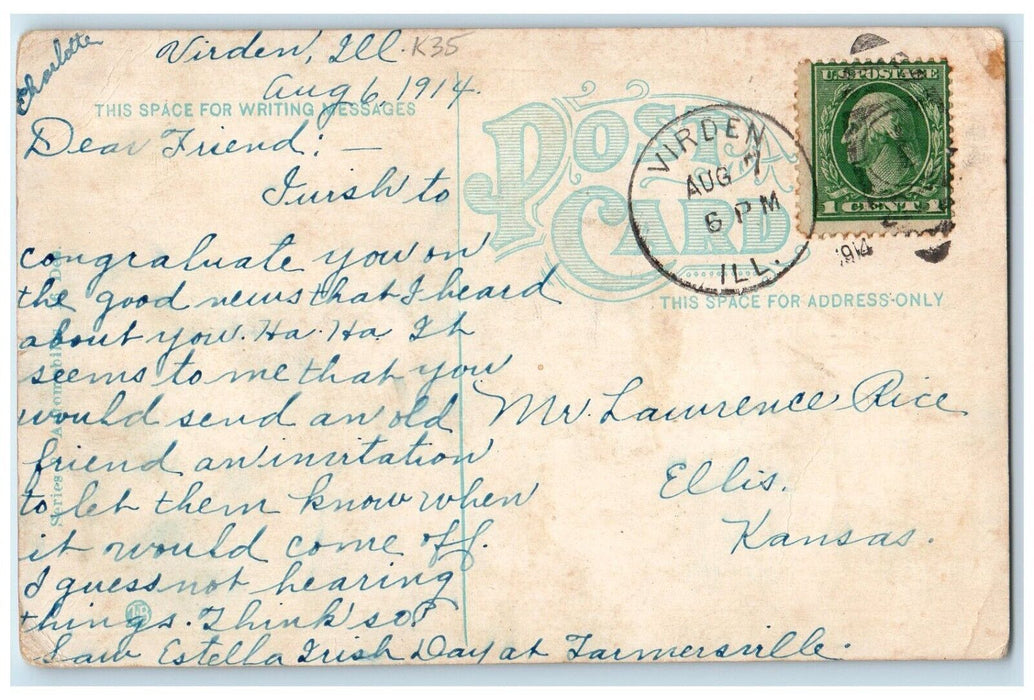 Charlotte
Virden, Ill. K35
Aug 6, 1914.
THIS SPACE FOR WRITING MESSAGES
Dear Friend: —
I wish to
congraluate you on
the good news that I heard
about you. Ha. Ha. It
seems to me that you
would send an old
friend an invitation
to let them know when
it would come off.
I guess not hearing
things. Think so?
Saw Estella Irish Day at Farmersville.
POST CARD
VIRDEN
AUG 7
6 PM
1914
ILL.
U.S. POSTAGE
1 CENT 1
THIS SPACE FOR ADDRESS ONLY
Mr. Lawrence Rice
Ellis.
Kansas.